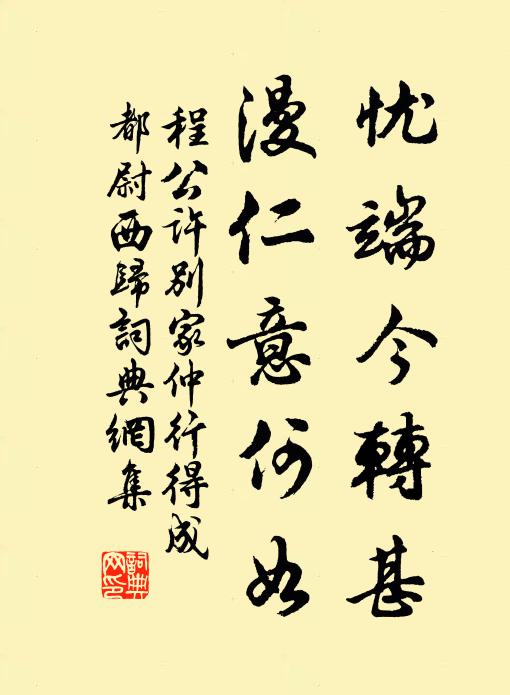 忧端今转甚
漫仁意何如
程公许别家仲行得成
都尉西歸詞典網集
詞典
网印